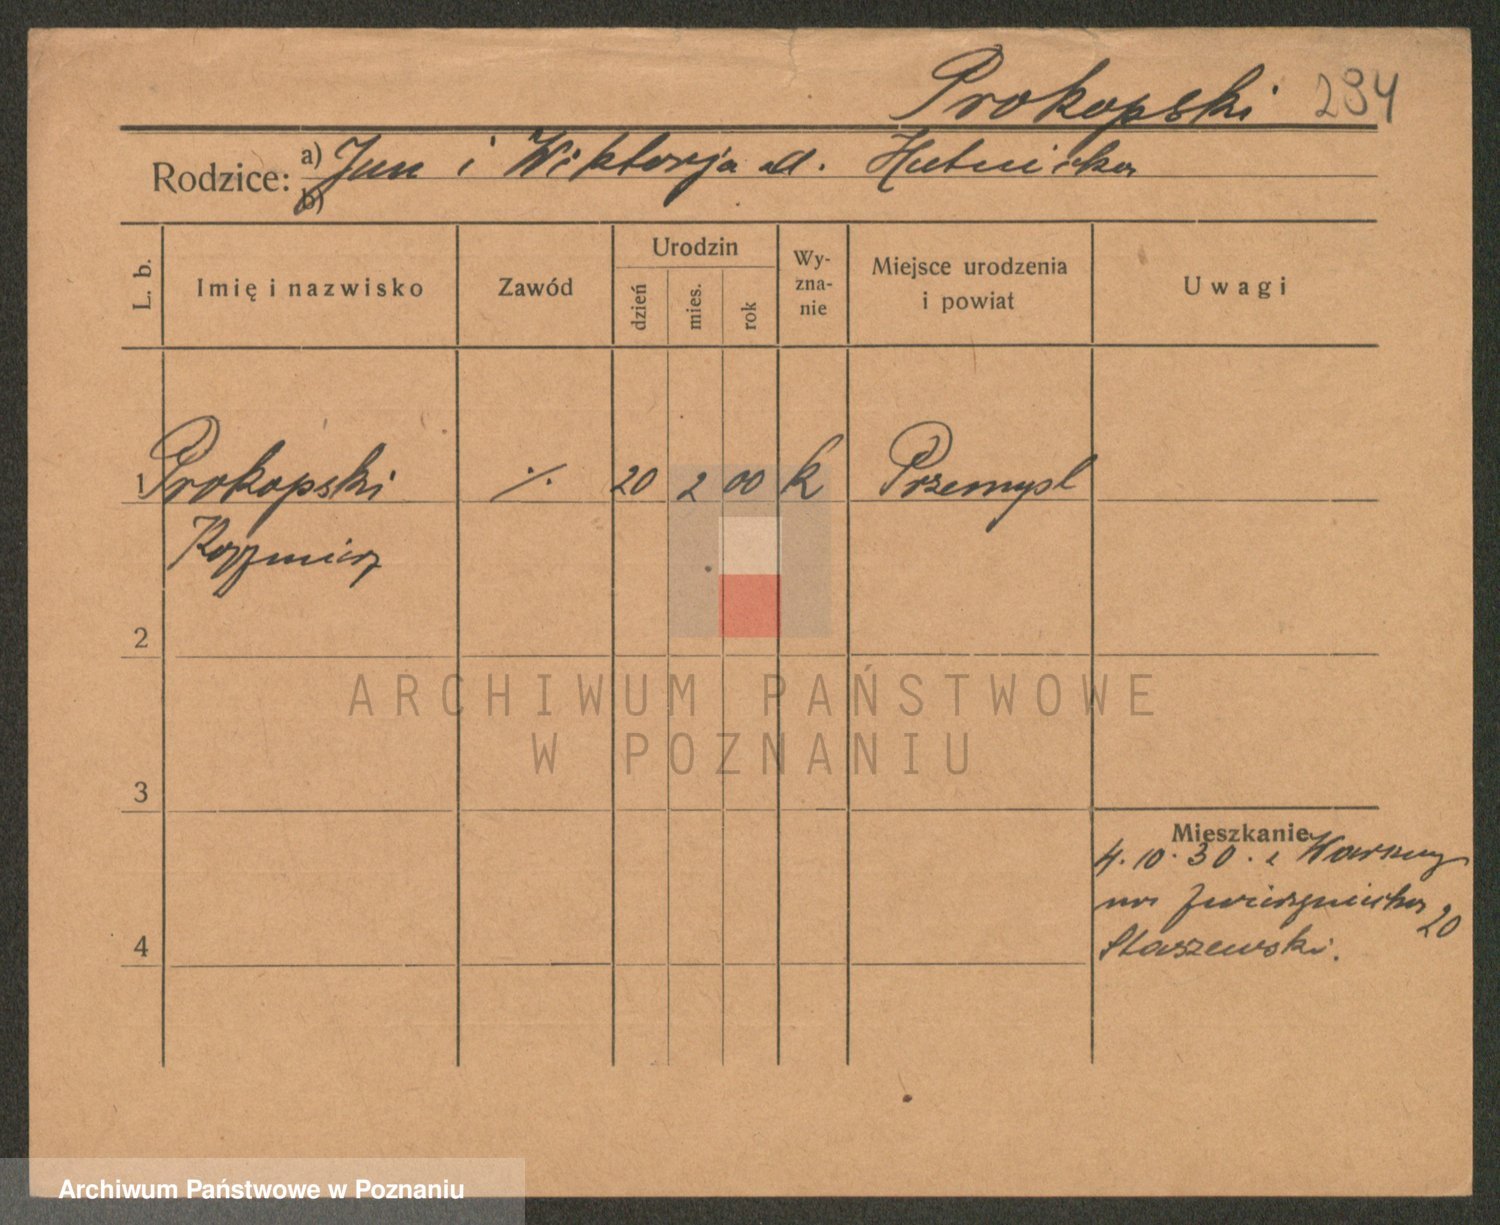 Prokopski 294
Rodzice: a) Jan i Wiktorja d. Hutnicka
b)
L. b. Imię i nazwisko Zawód Urodzin dzień mies. rok Wyznanie Miejsce urodzenia i powiat Uwagi
1 Prokopski ./. 20 2 00 k Przemysl
Kazimierz
2
3
Mieszkanie
4.10.30. z Warszawy
na Zwierzyniecka 20
4 Staszewski.
ARCHIWUM PAŃSTWOWE
W POZNANIU
Archiwum Państwowe w Poznaniu